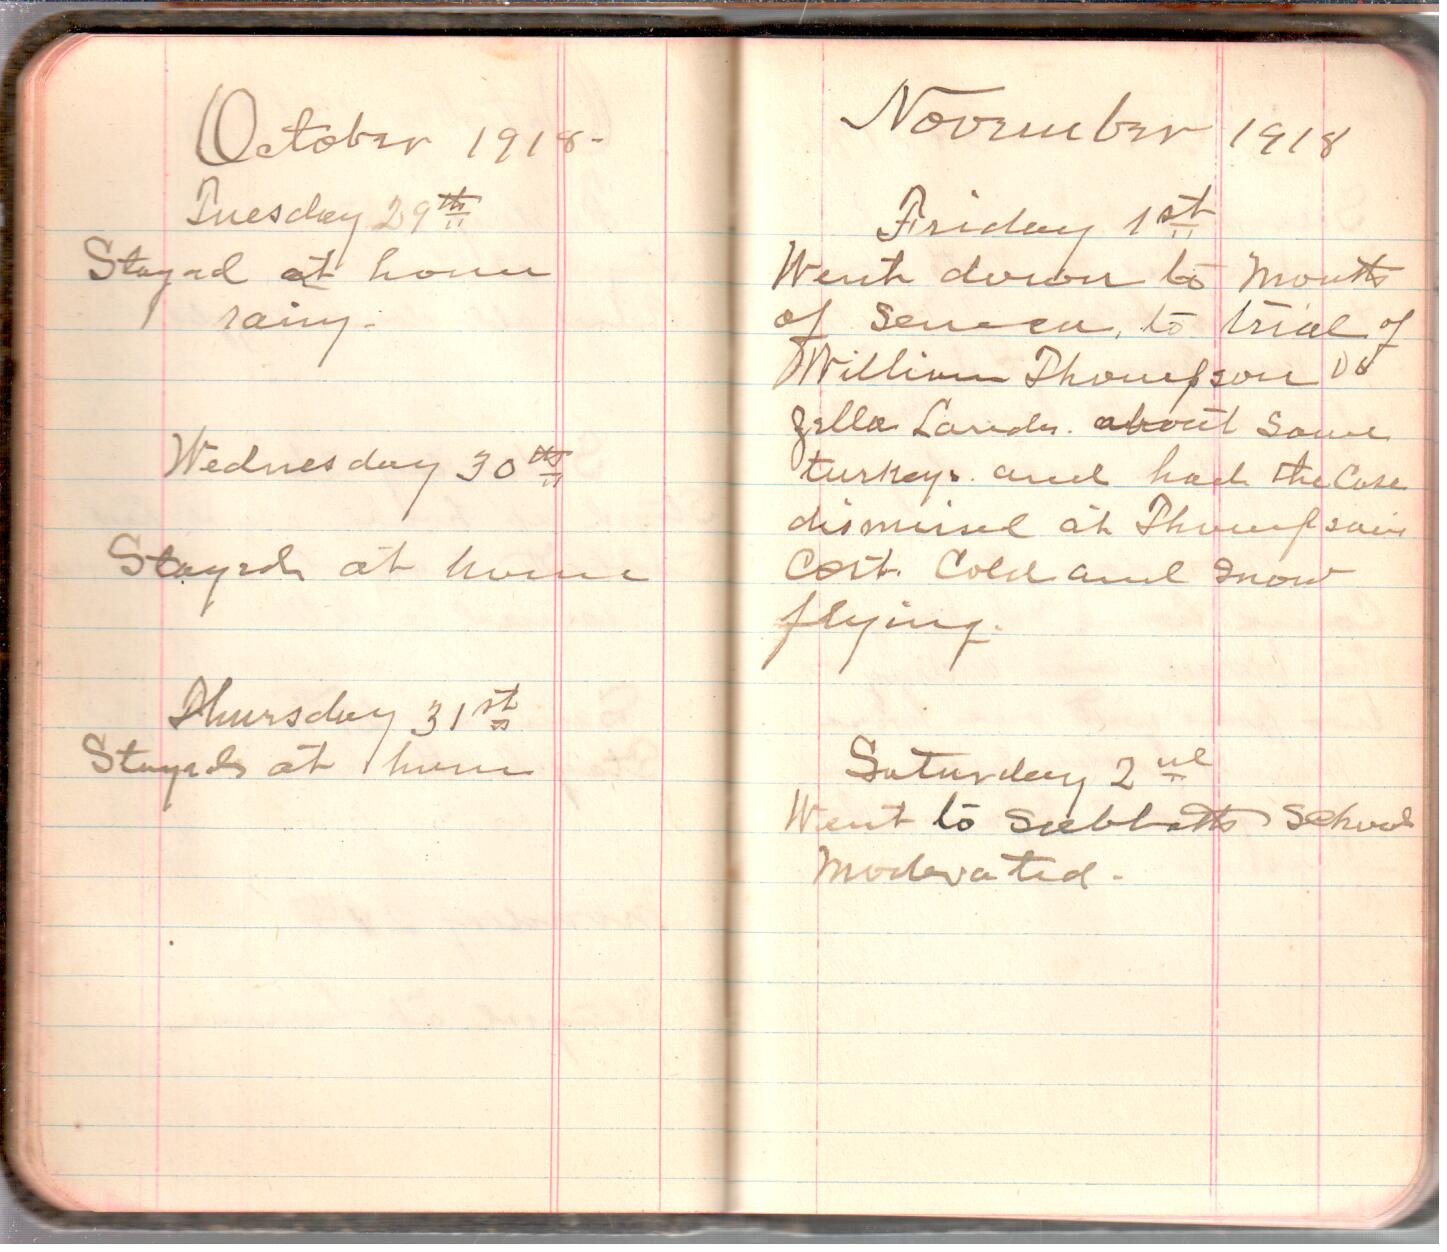 October 1918-
Tuesday 29th
Stayed at home
rainy.
Wednesday 30th
Stayed at home
Thursday 31st
Stayed at home
November 1918
Friday 1st
Went down to Mouth
of Seneca, to trial of
William Thompson vs
Zella Landis. about some
turkeys. and had the Case
dismised at Thompsons
Cost. Cold and snow
flying.
Saturday 2nd
Went to Sabbath School
Moderated.